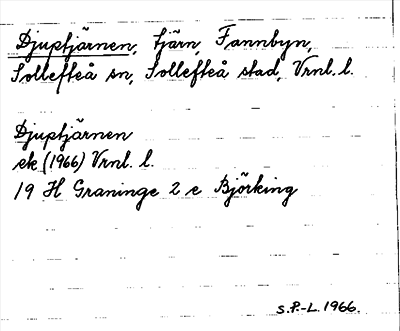 Djuptjärnen, tjärn, Fannbyn,
Sollefteå sn, Sollefteå stad, Vrnl. l.
Djuptjärnen
ek (1966) Vrnl. l.
19 H Graninge 2 e Björking
S.P.-L. 1966.